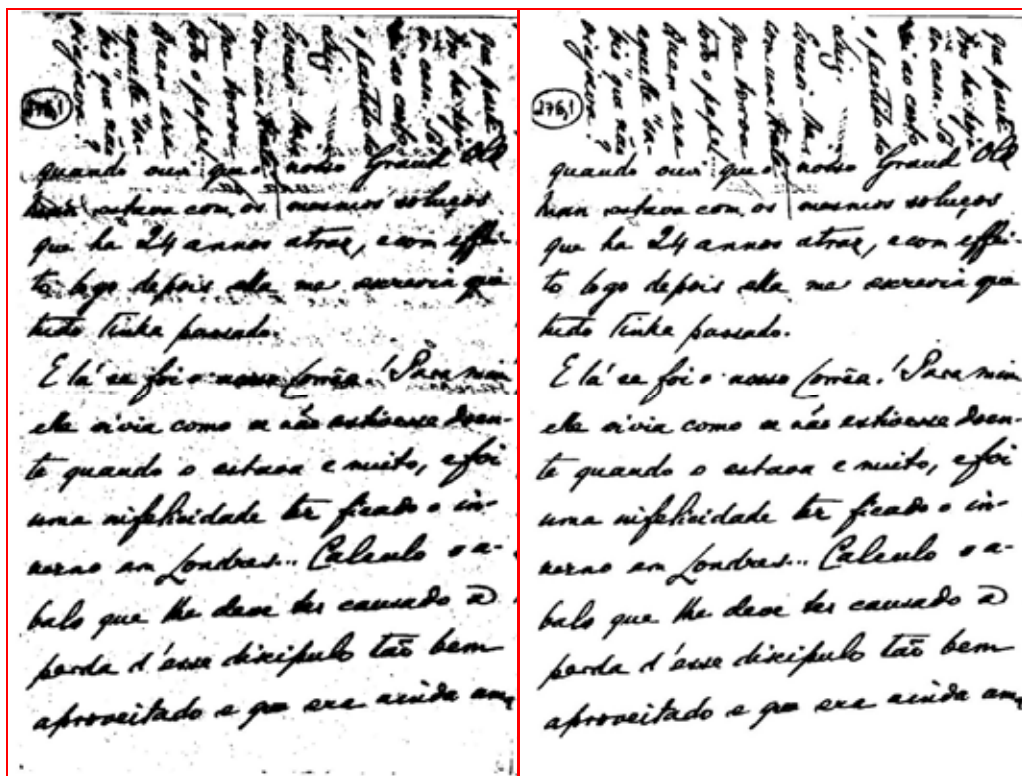 276,1
que
em casa. Só
o
com uma tinta
que borrou
todo o papel
Quem era
aquelle "sa-
bio" que não
viajava?
quando ouvi que o nosso Grand Old
man estava com os mesmos soluços
que ha 24 annos atraz, e com effei-
to logo depois ella me escrevia que
tudo tinha passado.
E lá se foi o nosso Corrêa! Para mim
elle vivia como se não estivesse doen-
te quando o estava e muito, e foi
uma infelicidade ter ficado o in-
verno em Londres... Calculo o a-
balo que lhe deve ter causado a
perda d'esse discipulo tão bem
aproveitado e que era ainda am
276,1
que
em casa. Só
o
com uma tinta
que borrou
todo o papel
Quem era
aquelle "sa-
bio" que não
viajava?
quando ouvi que o nosso Grand Old
man estava com os mesmos soluços
que ha 24 annos atraz, e com effei-
to logo depois ella me escrevia que
tudo tinha passado.
E lá se foi o nosso Corrêa! Para mim
elle vivia como se não estivesse doen-
te quando o estava e muito, e foi
uma infelicidade ter ficado o in-
verno em Londres... Calculo o a-
balo que lhe deve ter causado a
perda d'esse discipulo tão bem
aproveitado e que era ainda am